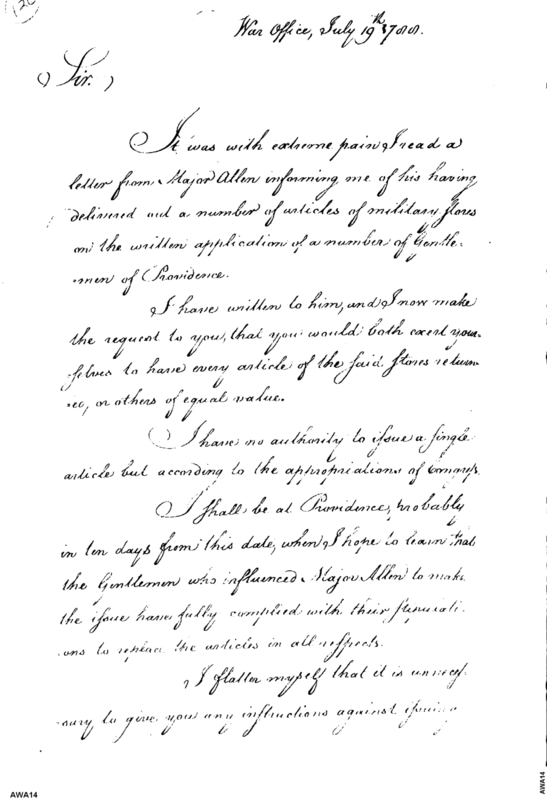 120
War Office, July 19th 1788.
Sir.
It was with extreme pain I read a
letter from Major Allen informing me of his having
delivered out a number of articles of military stores
on the written application of a number of Gentle-
-men of Providence.
I have written to him, and I now make
the request to you, that you would both exert your-
-selves to have every article of the said stores return-
-ed, or others of equal value.
I have no authority to issue a single
article but according to the appropriations of Congress.
I shall be at Providence, probably
in ten days from this date, when I hope to learn that
the Gentlemen who influenced Major Allen to make
the issue have fully complied with their stipulati-
-ons to replace the articles in all respects.
I flatter myself that it is unneces-
-sary to give you any instructions against issuing
AWA14
AWA14